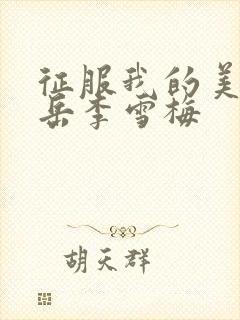 征服我的美
岳李雪梅
胡天群